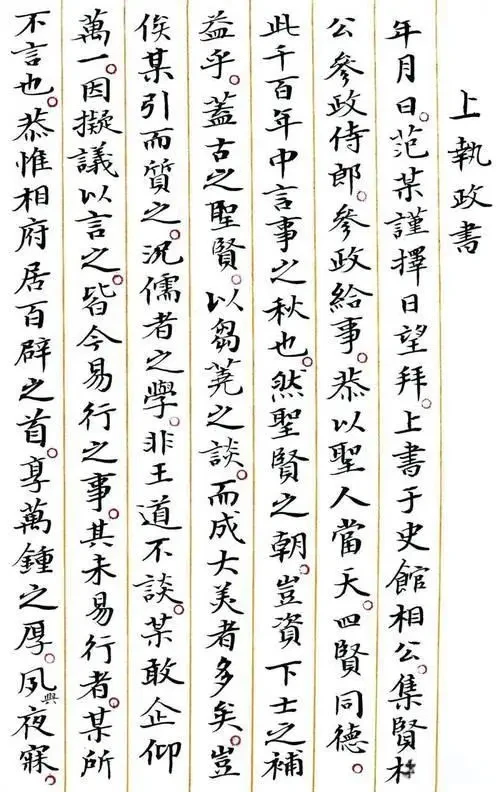 上執政書
年月日。范某謹擇日望拜。上書于史館相公。集賢相
公參政侍郎。參政給事。恭以聖人當天。四賢同德。
此千百年中言事之秋也。然聖賢之朝。豈資下士之補
益乎。蓋古之聖賢。以芻蕘之談。而成大美者多矣。豈
俟某引而質之。況儒者之學。非王道不談。某敢企仰
萬一。因擬議以言之。皆今易行之事。其未易行者。某所
不言也。恭惟相府居百辟之首。享萬鍾之厚。夙興夜寐。